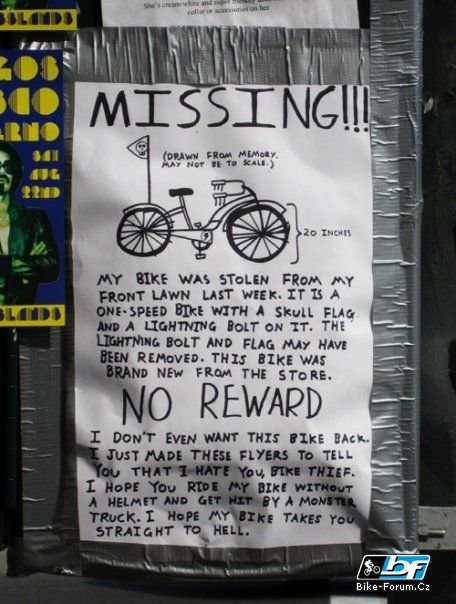 She's cream/white and super friendly does
collar or accessories on her
SLANDS
GOS
SCO
ERNO
SAT
AUG
22ND
SLANDS
MISSING!!!
(DRAWN FROM MEMORY.
MAY NOT BE TO SCALE.)
20 INCHES
MY BIKE WAS STOLEN FROM MY
FRONT LAWN LAST WEEK. IT IS A
ONE-SPEED BIKE WITH A SKULL FLAG
AND A LIGHTNING BOLT ON IT. THE
LIGHTNING BOLT AND FLAG MAY HAVE
BEEN REMOVED. THIS BIKE WAS
BRAND NEW FROM THE STORE.
NO REWARD
I DON'T EVEN WANT THIS BIKE BACK.
I JUST MADE THESE FLYERS TO TELL
YOU THAT I HATE YOU, BIKE THIEF.
I HOPE YOU RIDE MY BIKE WITHOUT
A HELMET AND GET HIT BY A MONSTER
TRUCK. I HOPE MY BIKE TAKES YOU
STRAIGHT TO HELL.
bf
Bike-Forum.Cz